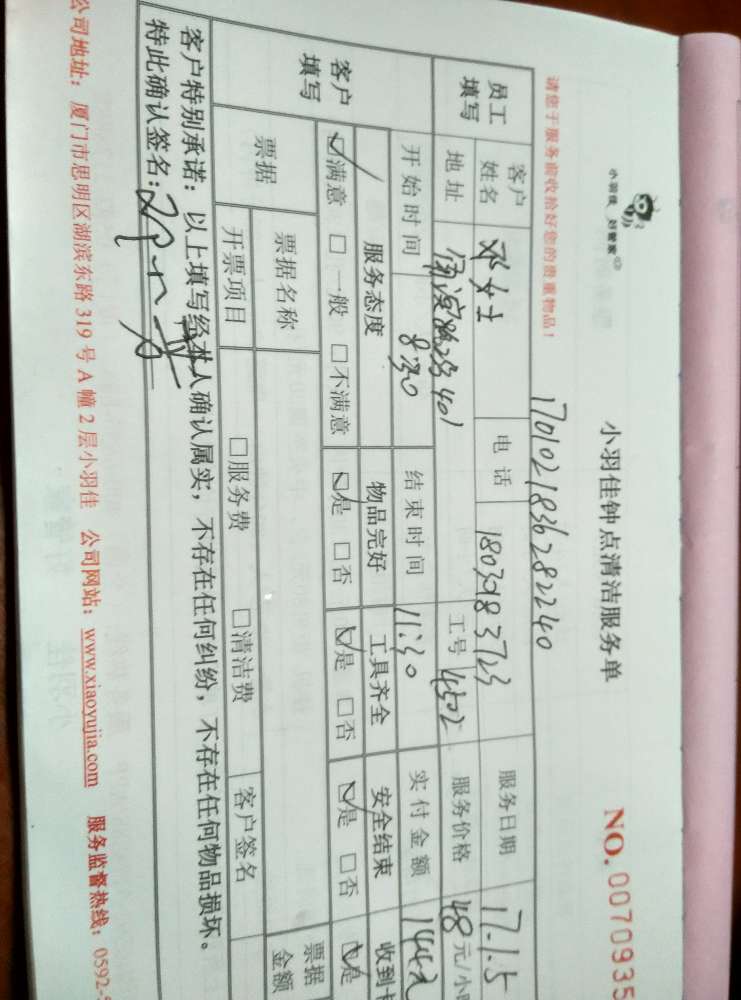 小羽佳 好管家
小羽佳钟点清洁服务单
NO. 0070935
请您于服务前收拾好您的贵重物品!
1701021836282240
员工填写 客户姓名 邓女士 电话 1803983723 服务日期 17.1.5
地址 401 工号 4502 服务价格 48 元/小时
开始时间 8:30 结束时间 11:30 实付金额 144元
客户填写 服务态度 物品完好 工具齐全 安全结束 收到卡
☑满意 □一般 □不满意 ☑是 □否 ☑是 □否 ☑是 □否 ☑是
票据 票据名称 票据金额
开票项目 □服务费 □清洁费 客户签名
客户特别承诺:以上填写经本人确认属实,不存在任何纠纷,不存在任何物品损坏。
特此确认签名:
公司地址:厦门市思明区湖滨东路319号A幢2层小羽佳 公司网站:www.xiaoyujia.com 服务监督热线:0592-5